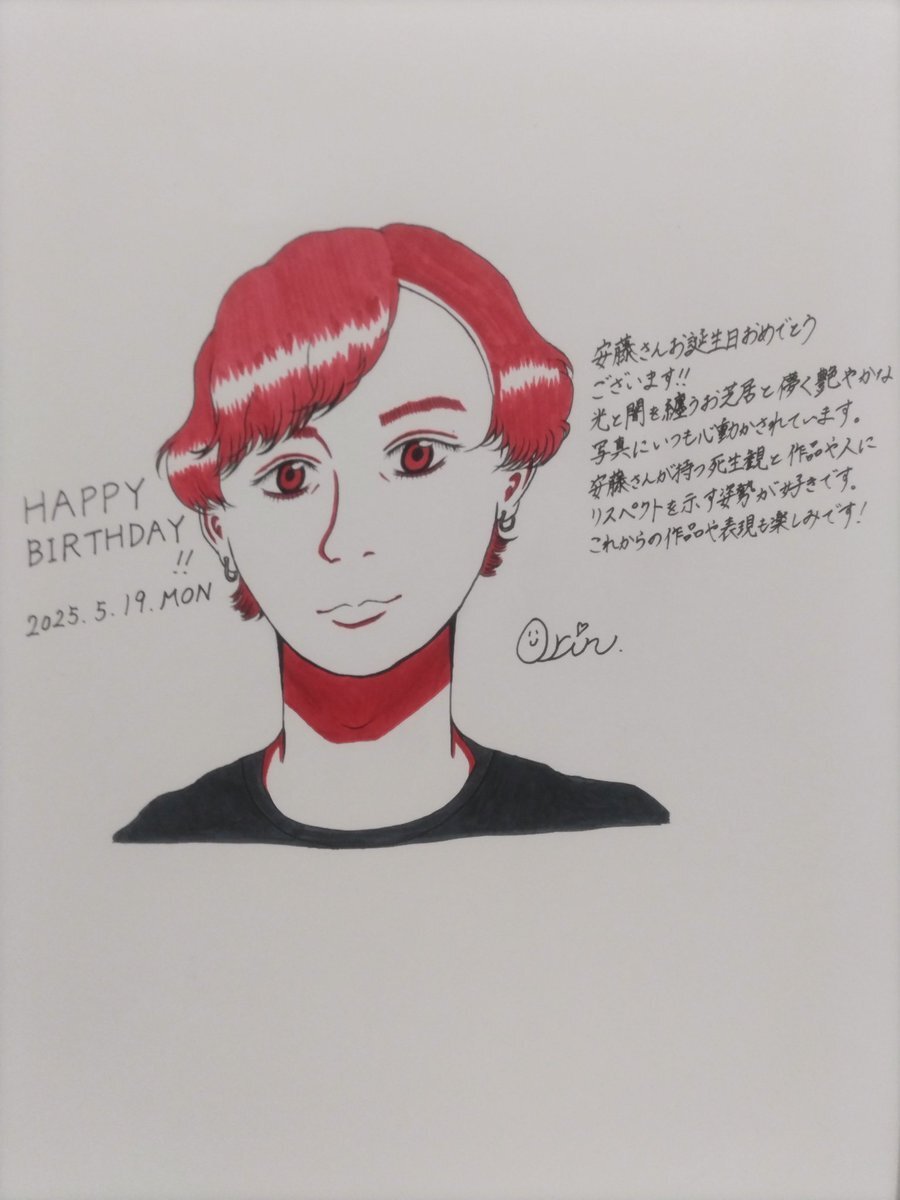 HAPPY
BIRTHDAY
!!
2025.5.19.MON
安藤さんお誕生日おめでとう
ございます!!
光と闇を纏うお芝居と儚く艶やかな
写真にいつも心動かされています。
安藤さんが持つ死生観と作品や人に
リスペクトを示す姿勢が好きです。
これからの作品や表現も楽しみです!
Orin.